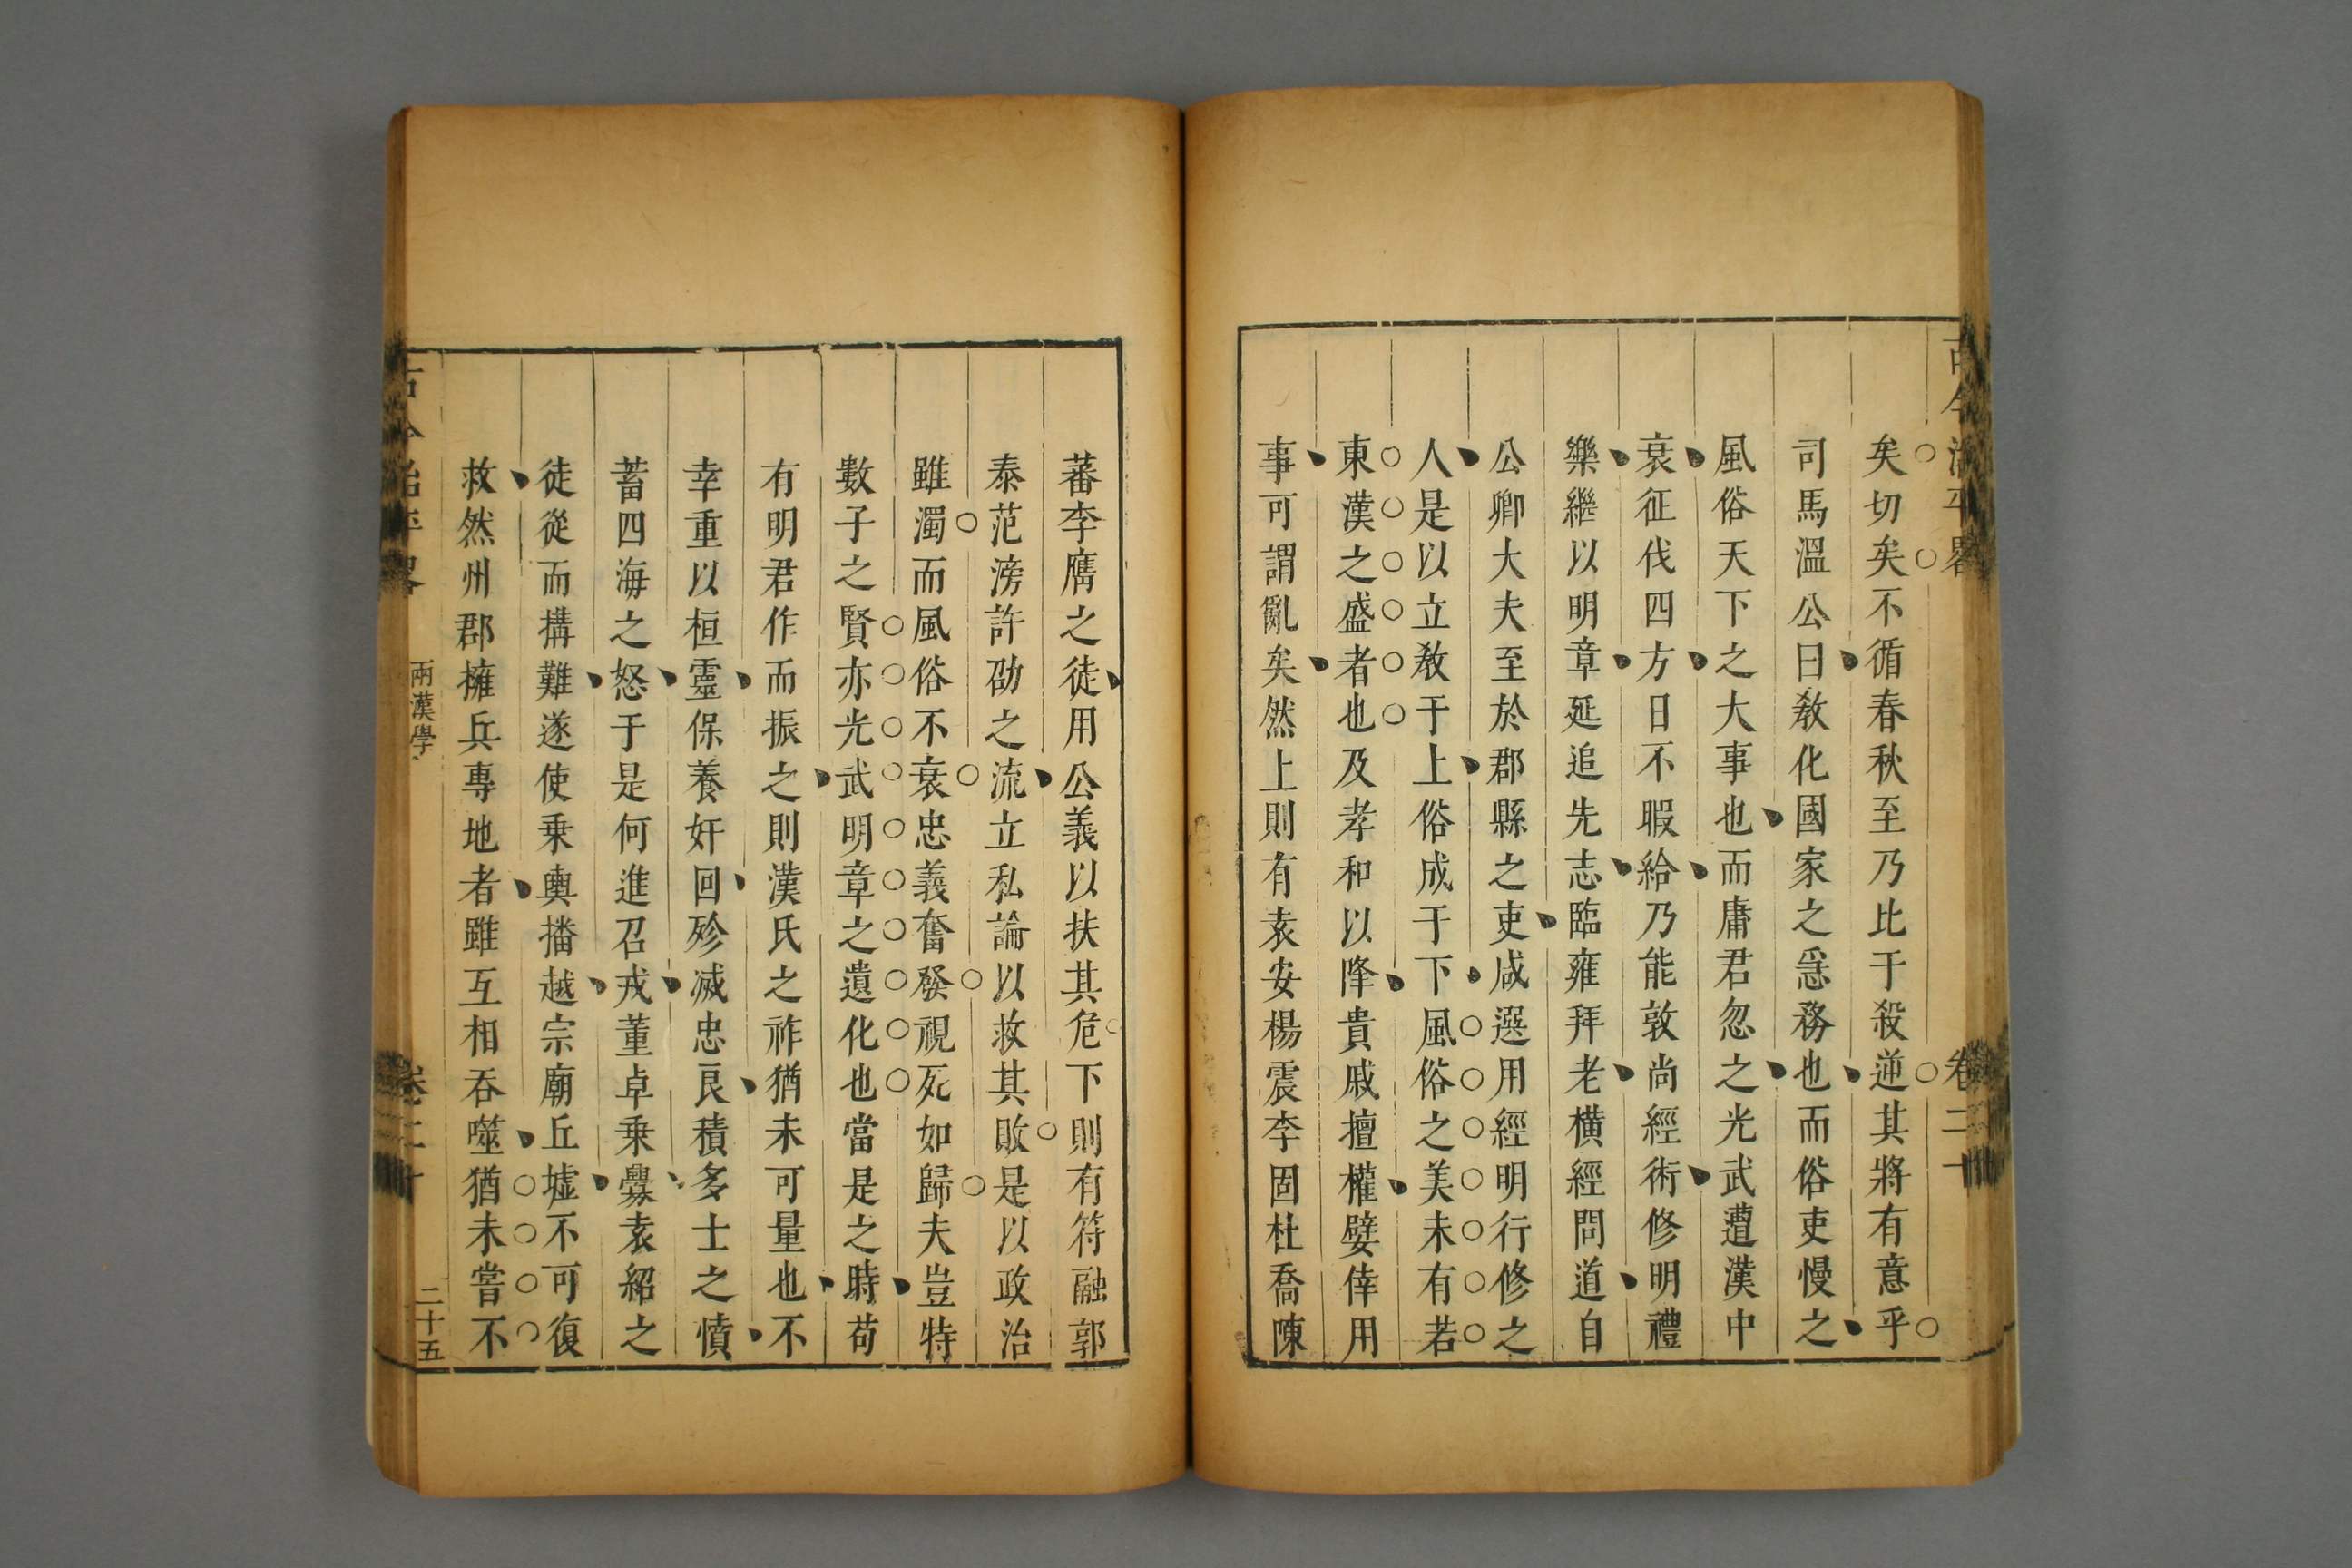 古今治平畧 卷二十
矣切矣不循春秋至乃比于殺逆其將有意乎
司馬溫公曰敎化國家之急務也而俗吏慢之
風俗天下之大事也而庸君忽之光武遭漢中
衰征伐四方日不暇給乃能敦尚經術修明禮
樂繼以明章延追先志臨雍拜老橫經問道自
公卿大夫至於郡縣之吏咸選用經明行修之
人是以立敎于上俗成于下風俗之美未有若
東漢之盛者也及孝和以降貴戚擅權嬖倖用
事可謂亂矣然上則有袁安楊震李固杜喬陳
蕃李膺之徒用公義以扶其危下則有符融郭
泰范滂許劭之流立私論以救其敗是以政治
雖濁而風俗不衰忠義奮發視死如歸夫豈特
數子之賢亦光武明章之遺化也當是之時苟
有明君作而振之則漢氏之祚猶未可量也不
幸重以桓靈保養奸回殄滅忠良積多士之憤
蓄四海之怒于是何進召戎董卓乗釁袁紹之
徒從而搆難遂使乗輿播越宗廟丘墟不可復
救然州郡擁兵專地者雖互相吞噬猶未嘗不
古今治平畧 兩漢學 卷二十 二十五